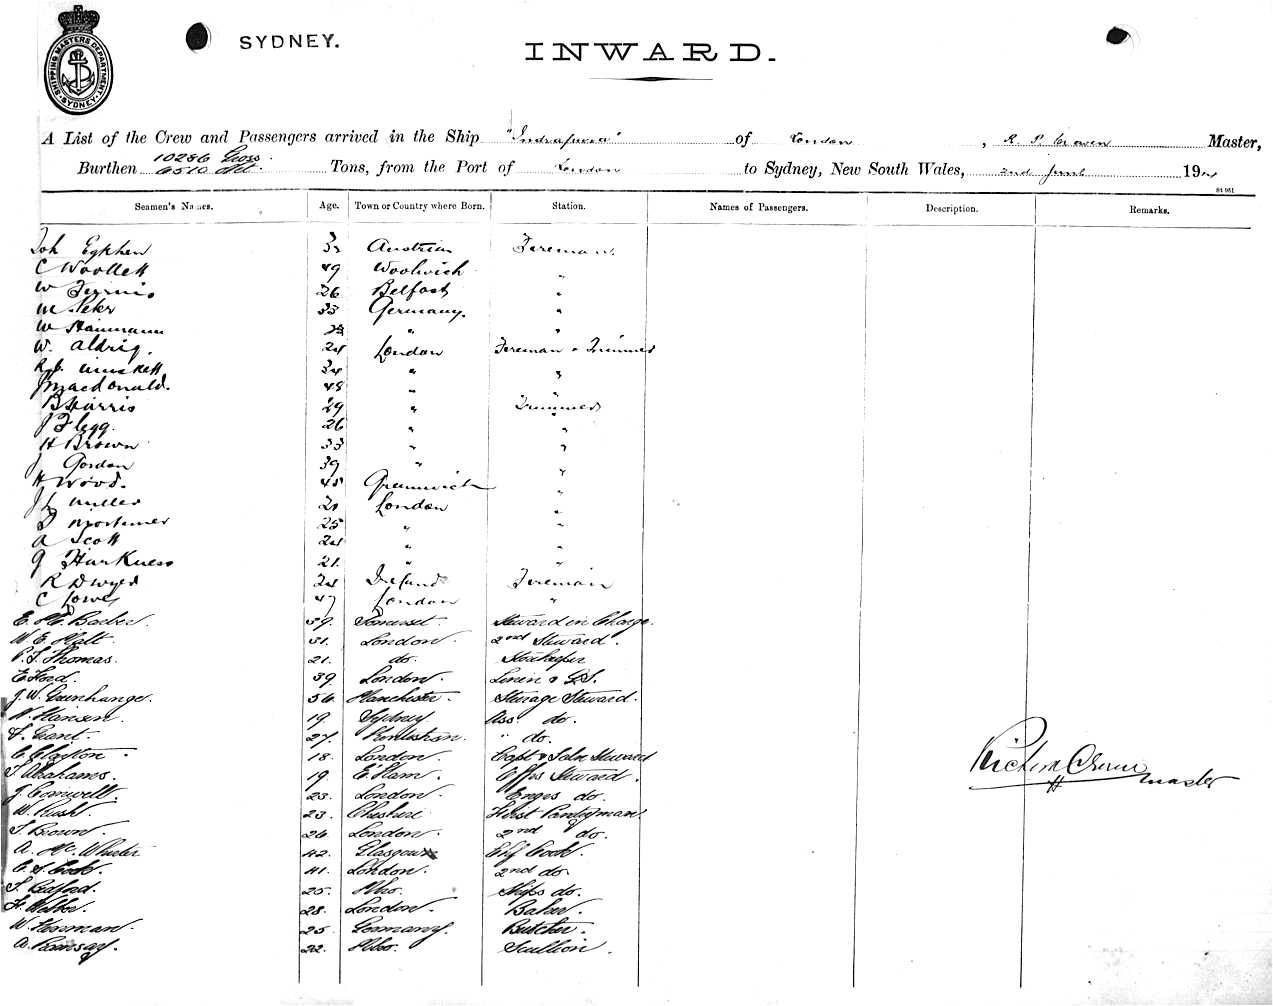 SHIPPING MASTERS DEPARTMENT
SYDNEY
SYDNEY.
INWARD.
A List of the Crew and Passengers arrived in the Ship "Indrapura" of London, R. P. Craven Master,
Burthen 10286 Gross 6510 Tons, from the Port of London to Sydney, New South Wales, 2nd June 19
Seamen's Names. Age. Town or Country where Born. Station. Names of Passengers. Description. Remarks.
Joh Austria Fireman.
C Woollett 49 Woolwich "
W 26 Belfast "
M Peter 33 Germany. "
W Hanmann " "
W. Aldrig. 24 London Fireman & Trimmer
Muskett 34 " "
J Macdonald. 48 "
B Harris 29 " Trimmer
J Flegg. 26 " "
H Brown 33 " "
J Gordon 39 " "
H Wood. 45 Greenwich "
J L Miller London "
D Mortimer 25 " "
A Scott 24 " "
G Harkness 21. " "
R Dwyer 24 Ireland Fireman
C Lowe 47 London "
E. H. Barber. 39. Somerset. Steward in Charge.
W. E. Hatt. 31. London. 2nd Steward.
P. J. Thomas. 21. do. Storekeeper
E. Ford. 39 London. Linen &
J. W. Greenhange. 56. Manchester. Steerage Steward.
N. Hansen. 19. Sydney Ass. do.
F. Grant. 27. " do.
C. Clayton. 18. London. Capt & Saln Steward
J. Abrahams. 19. E. Ham. Offrs Steward.
J. Cornwell. 23. London. Engrs do.
W. Rush. 23. Cheshire First Pantryman
J. Brown. 26. London. 2nd do.
A. Mc. Whirter 42. Glasgow Cook.
C. J. Cook. 41. London. 2nd do.
J. Bedford. 25. Ships do.
F. Webbe. 28. London. Baker.
W. Herman. 25. Germany. Butcher.
A. Ramsay. 22. Scullion.
Richard Craven
Master